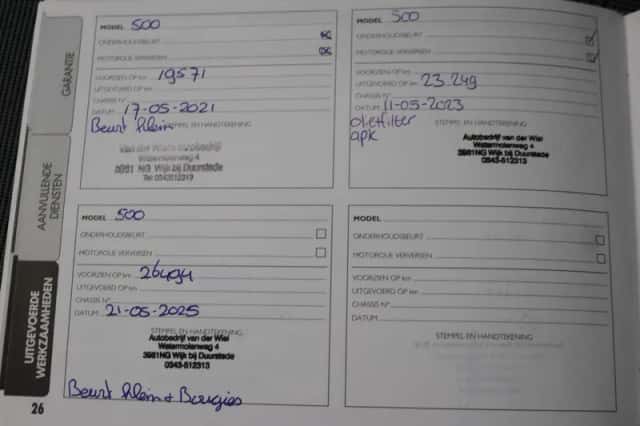 GARANTIE
AANVULLENDE
DIENSTEN
UITGEVOERDE
WERKZAAMHEDEN
MODEL 500
ONDERHOUDSBEURT
MOTOROLIE VERVERSEN
VOORZIEN OP km 19571
UITGEVOERD OP km
CHASSIS N°
DATUM 17-05-2021
Beurt klein
STEMPEL EN HANDTEKENING
Van der Wiele Autobedrijf
Watermolenweg 4
3961 NG Wijk bij Duurstede
Tel: 0343512313
MODEL 500
ONDERHOUDSBEURT
MOTOROLIE VERVERSEN
VOORZIEN OP km
UITGEVOERD OP km 23.249
CHASSIS N°
DATUM 11-05-2023
olietfilter
apk
STEMPEL EN HANDTEKENING
Autobedrijf van der Wiel
Watermolenweg 4
3961NG Wijk bij Duurstede
0343-512313
MODEL 500
ONDERHOUDSBEURT
MOTOROLIE VERVERSEN
VOORZIEN OP km 26494
UITGEVOERD OP km
CHASSIS N°
DATUM 21-05-2025
STEMPEL EN HANDTEKENING
Autobedrijf van der Wiel
Watermolenweg 4
3961NG Wijk bij Duurstede
0343-512313
Beurt klein + Bougies
MODEL
ONDERHOUDSBEURT
MOTOROLIE VERVERSEN
VOORZIEN OP km
UITGEVOERD OP km
CHASSIS N°
DATUM
STEMPEL EN HANDTEKENING
26